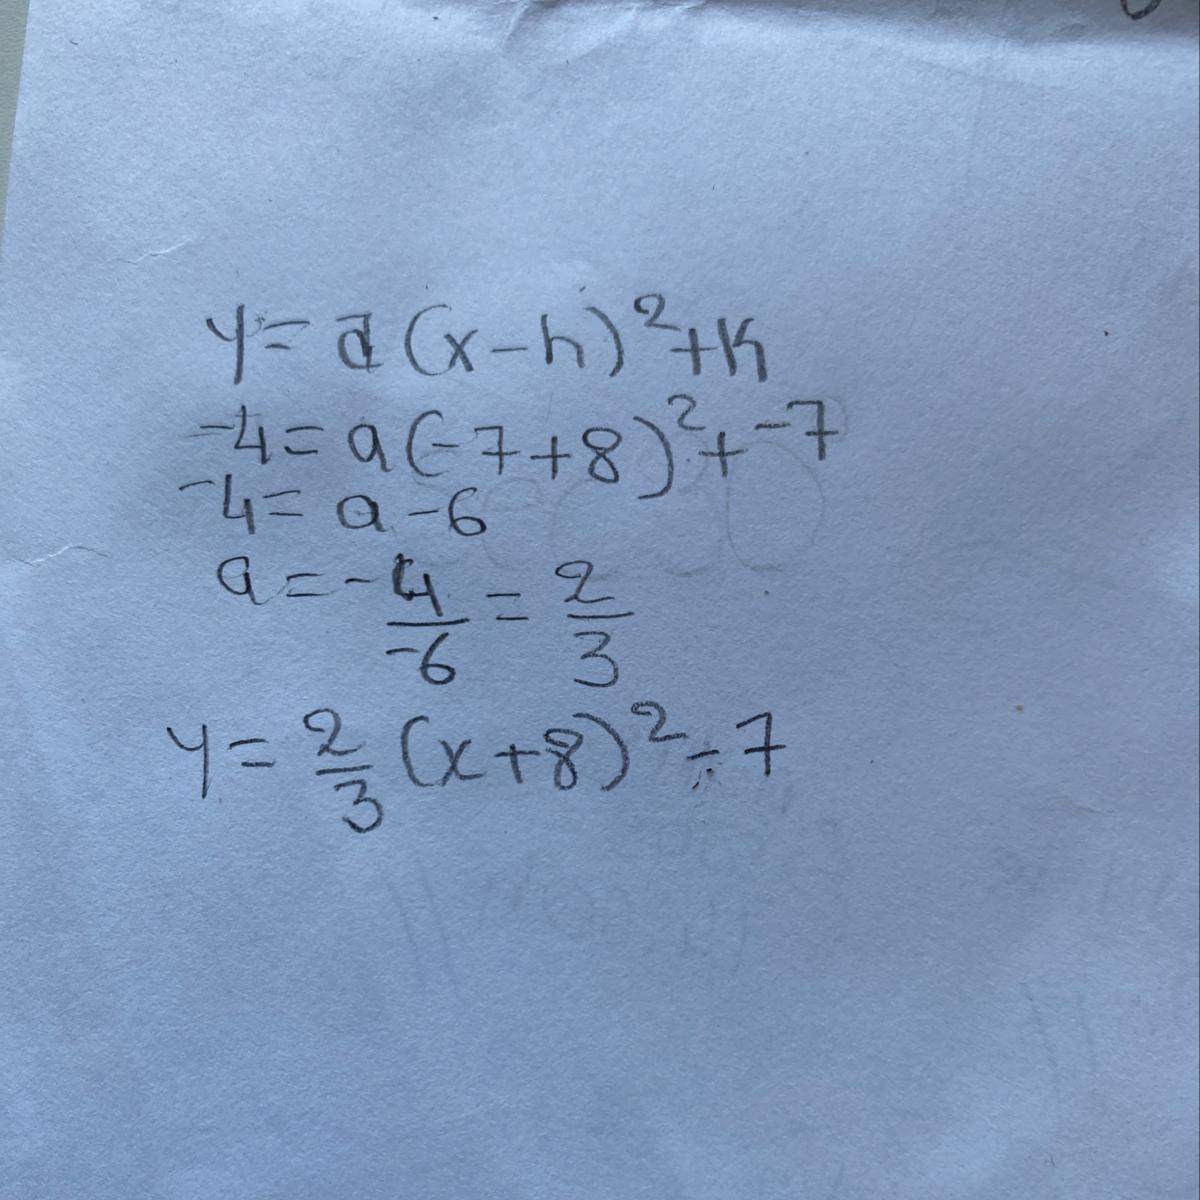 y = a(x-h)²+k
-4 = a(-7+8)²+-7
-4 = a -6
a = -4/-6 = 2/3
y = 2/3 (x+8)²-7